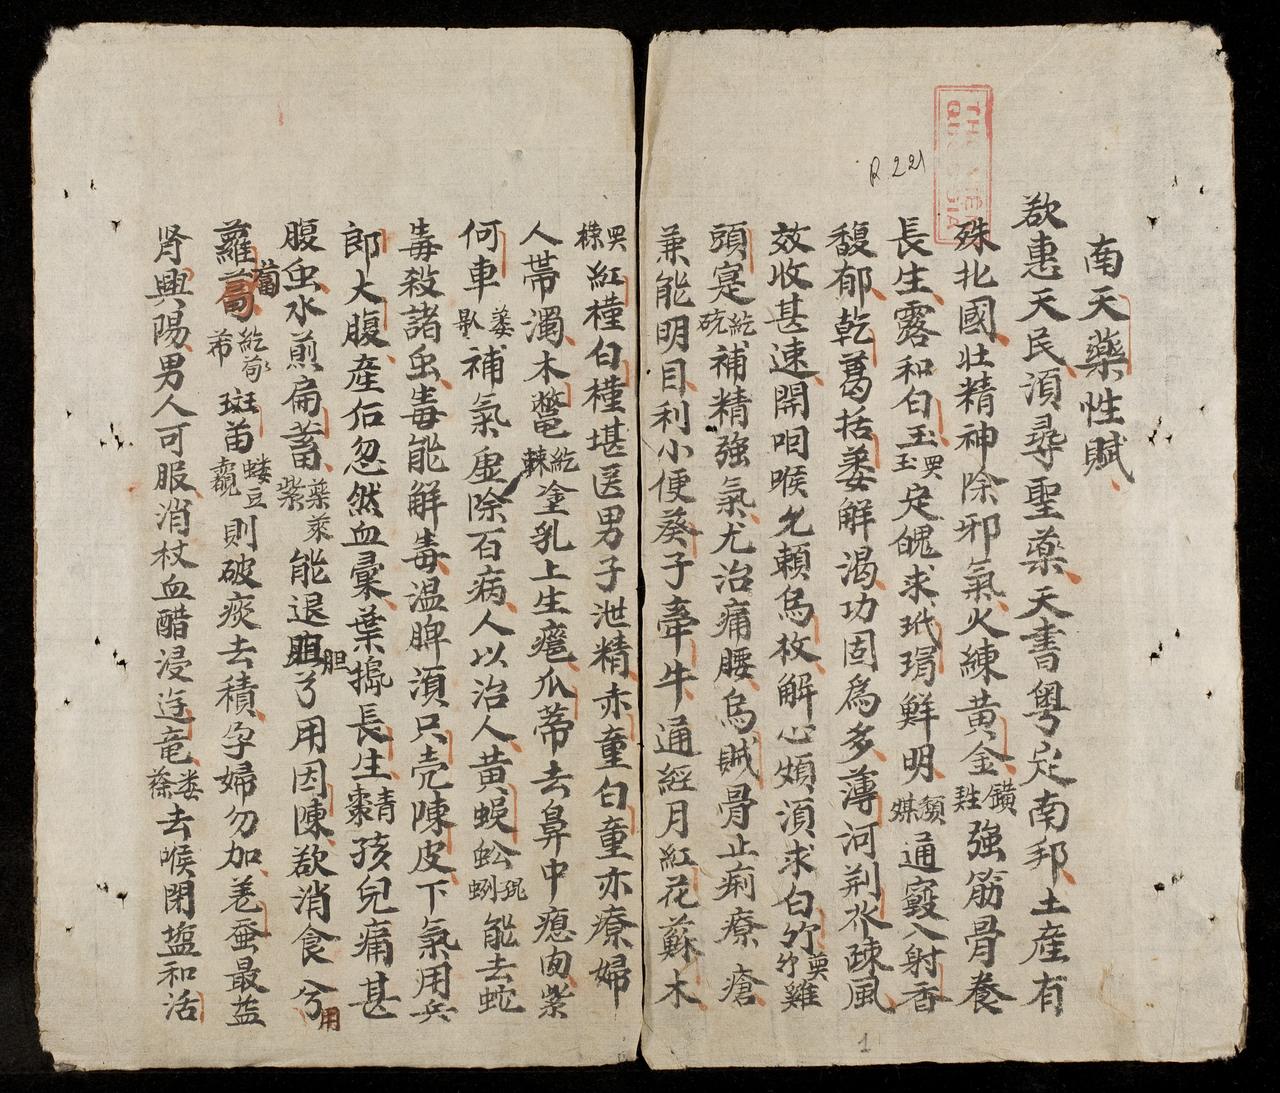 南天藥性賦
欲惠天民湏尋聖藥天書粤定南邦土産有
殊北國壯精神除邪氣火練黄金鑛甡強筋骨養
長生露和白玉㗂玉定魄求玳瑁鮮明𩔗媒通竅入射香
馥郁乾葛括蒌解渴功固爲多薄河荆水疎風
效收甚速開咽喉允賴烏枚解心煩湏求白竹雞
頭寔紇硫補精強氣尤治痛腰烏賊骨止痢療瘡
兼能明目利小便葵子牽牛通經月紅花蘇木
紅槿白槿堪医男子泄精赤童白童亦療婦
人帶濁木鱉紇棘塗乳上生癰瓜蒂去鼻中瘜肉紫
何車補氣虚除百病人以治人黄蜈蚣能去蛇
毒殺諸虫毒能解毒温脾湏只壳陳皮下氣用兵
郎大腹産后忽然血暈葉搗長生青棗孩兒痛甚
腹虫水煎扁蓄藥菜紫能退胆兮用因陳欲消食兮用
蘿蔔紇荀希斑苗螻豆則破痰去積孕婦勿加羌蚕最益
肾興陽男人可服消杖血醋浸逹竜蒌蔡去喉閉塩和活
R 221
1